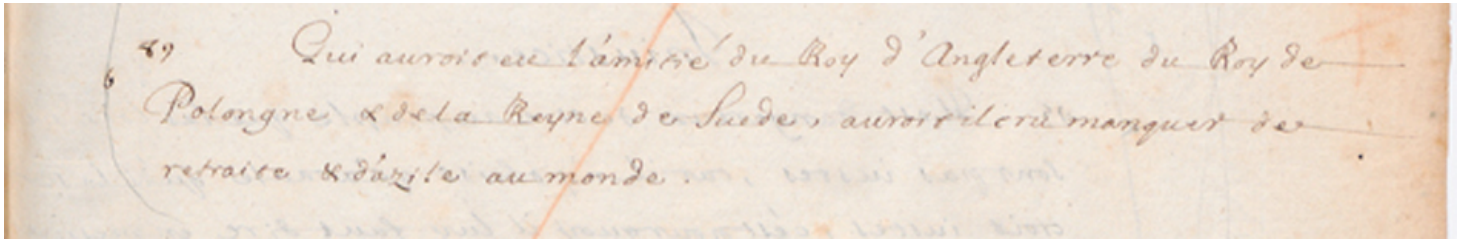 89 Qui auroit eu l'amitié du Roy d'Angleterre du Roy de
6
Polongne & de la Reyne de Suede, auroit il cru manquer de
retraite & d'azile au monde .